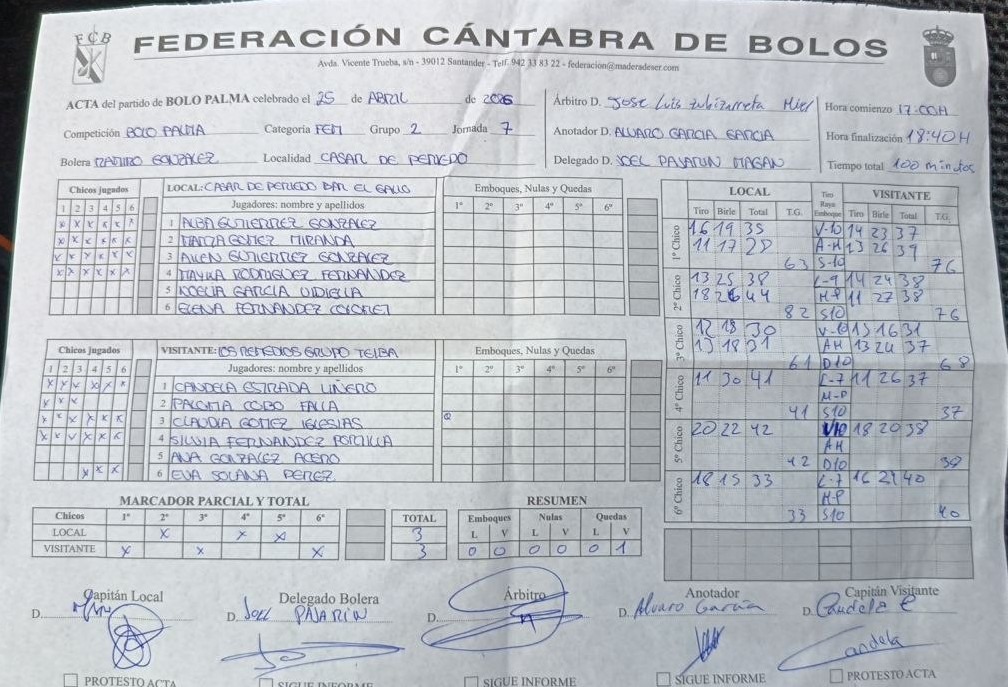 FCB
FEDERACIÓN CÁNTABRA DE BOLOS
Avda. Vicente Trueba, s/n - 39012 Santander - Telf. 942 33 83 22 - federacion@maderadeser.com
ACTA del partido de BOLO PALMA celebrado el 25 de ABRIL de 2026
Árbitro D. JOSE LUIS
Hora comienzo 17:00H
Competición BOLO PALMA Categoria FEM Grupo 2 Jornada 7
Anotador D. ALVARO GARCIA GARCIA
Hora finalización 18:40H
Bolera RAMIRO GONZALEZ Localidad CASAR DE PERIEDO
Delegado D. JOEL PAJARIN MAGAN
Tiempo total 100 minutos
Chicos jugados LOCAL: CASAR DE PERIEDO BAR EL GALLO Emboques, Nulas y Quedas
1 2 3 4 5 6 Jugadores: nombre y apellidos 1º 2º 3º 4º 5º 6º
x x x x x x 1 ALBA GUTIERREZ GONZALEZ
x x x x x x 2 MARZA GOMEZ MIRANDA
x x x x x x 3 AILEN GUTIERREZ GONZALEZ
x x x x x x 4 MAYKA RODRIGUEZ FERNANDEZ
5 NOELIA GARCIA VIDIELLA
6 ELENA FERNANDEZ
Chicos jugados VISITANTE: LOS REMEDIOS GRUPO TELBA Emboques, Nulas y Quedas
1 2 3 4 5 6 Jugadores: nombre y apellidos 1º 2º 3º 4º 5º 6º
x x x x x x 1 CANDELA ESTRADA LIÑERO
x x x 2 PALOMA COBO FALLA
x x x x x x 3 CLAUDIA GOMEZ IGLESIAS Q
x x x x x x 4 SILVIA FERNANDEZ PORTILLA
5 ANA GONZALEZ ACERO
x x x 6 EVA SOLANA PEREZ
LOCAL Tiro Raya Emboque VISITANTE
Tiro Birle Total T.G. Tiro Birle Total T.G.
1º Chico 16 19 35 V-10 14 23 37
11 17 28 A-H 13 26 39
63 S-10 76
2º Chico 13 25 38 L-9 14 24 38
18 26 44 M-P 11 27 38
82 S10 76
3º Chico 12 18 30 V-10 15 16 31
13 18 31 AH 13 24 37
61 D10 68
4º Chico 11 30 41 L-7 11 26 37
M-P
41 S10 37
5º Chico 20 22 42 V10 18 20 38
AH
42 D10 38
6º Chico 18 15 33 L-7 16 24 40
M-P
33 S10 40
MARCADOR PARCIAL Y TOTAL RESUMEN
Chicos 1º 2º 3º 4º 5º 6º TOTAL Emboques Nulas Quedas
LOCAL x x x 3 L V L V L V
VISITANTE x x x 3 0 0 0 0 0 1
Capitán Local Delegado Bolera Árbitro Anotador Capitán Visitante
D. D. JOEL PAJARIN D. D. Alvaro García D. Candela E
Candela
PROTESTO ACTA SIGUE INFORME SIGUE INFORME SIGUE INFORME PROTESTO ACTA